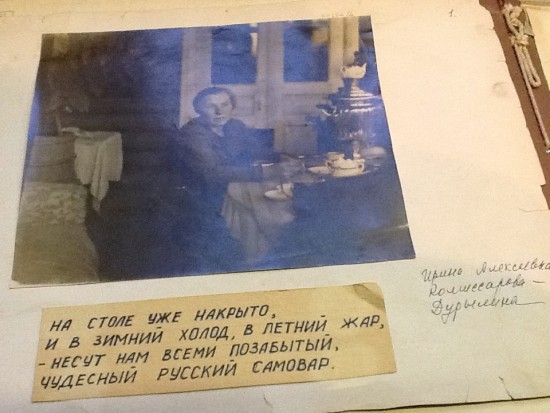 1.
НА СТОЛЕ УЖЕ НАКРЫТО,
И В ЗИМНИЙ ХОЛОД, В ЛЕТНИЙ ЖАР,
- НЕСУТ НАМ ВСЕМИ ПОЗАБЫТЫЙ,
ЧУДЕСНЫЙ РУССКИЙ САМОВАР.
Ирина Алексеевна
Комиссарова-
Дурылина